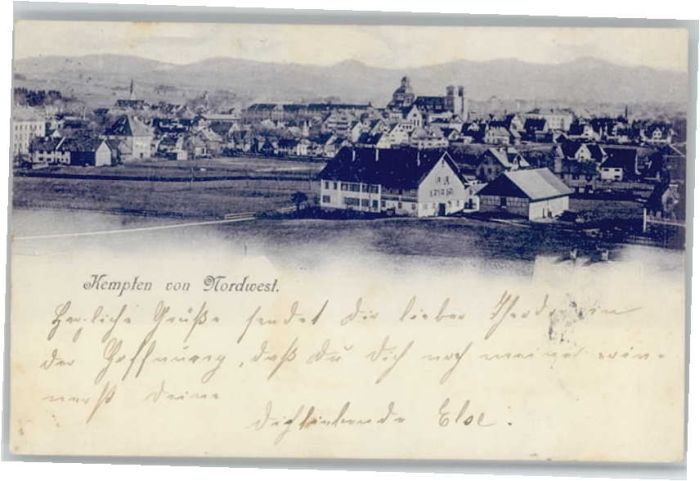 Kempten von Nordwest.
Herzliche Grüße sendet dir lieber Theodor in
der Hoffnung, daß du dich noch meiner erin-
nerst deine
dichliebende Else.